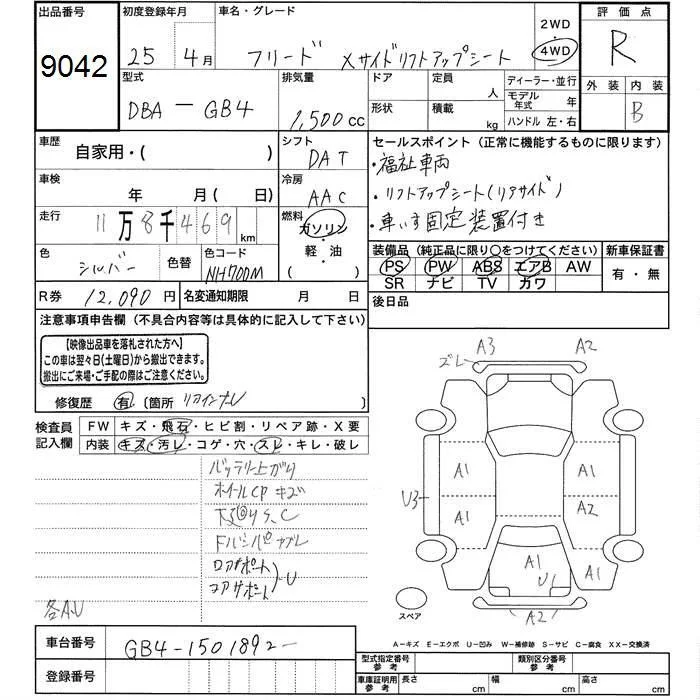 出品番号
9042
初度登録年月
25 4月
車名・グレード
フリード Xサイドリフトアップシート
2WD
4WD
評価点
R
外装 内装
B
型式
DBA-GB4
排気量
1,500cc
ドア
形状
定員
人
積載
kg
ディーラー・並行
モデル年式 年
ハンドル 左・右
車歴
自家用・( )
シフト
DAT
車検
年 月( 日)
冷房
AAC
走行
11万8千469km
燃料
ガソリン
・
軽・油
( )
色
シルバー
色替
色コード
NH700M
R券 12,090円
名変通知期限 月 日
セールスポイント(正常に機能するものに限ります)
・福祉車両
・リフトアップシート(リアサイド)
・車いす固定装置付き
装備品(純正品に限り○をつけてください)
PS PW ABS エアB AW
SR ナビ TV カワ
新車保証書
有・無
後日品
注意事項申告欄(不具合内容等は具体的に記入して下さい)
【映像出品車を落札された方へ】
この車は翌々日(土曜日)から搬出できます。
搬出にご来場・ご手配の際はご注意ください。
修復歴 有 [箇所 リアインナーU ]
検査員記入欄
FW キズ・飛石・ヒビ割・リペア跡・X要
内装 キズ・汚レ・コゲ・穴・スレ・キレ・破レ
バッテリー上がり
ホイールCPキズ
下廻りS、C
コアサポート
U
各A.U
ズレ A3 A2
A1 A1
U3
A1 A2
A1 U1 A1
A2
スペア
A-キズ E-エクボ U-凹み W-補修跡 S-サビ C-腐食 XX-交換済
車台番号
GB4-1501892-
登録番号
型式指定番号参考
類別区分番号参考
車庫証明用参考
長さ cm
幅 cm
高さ cm